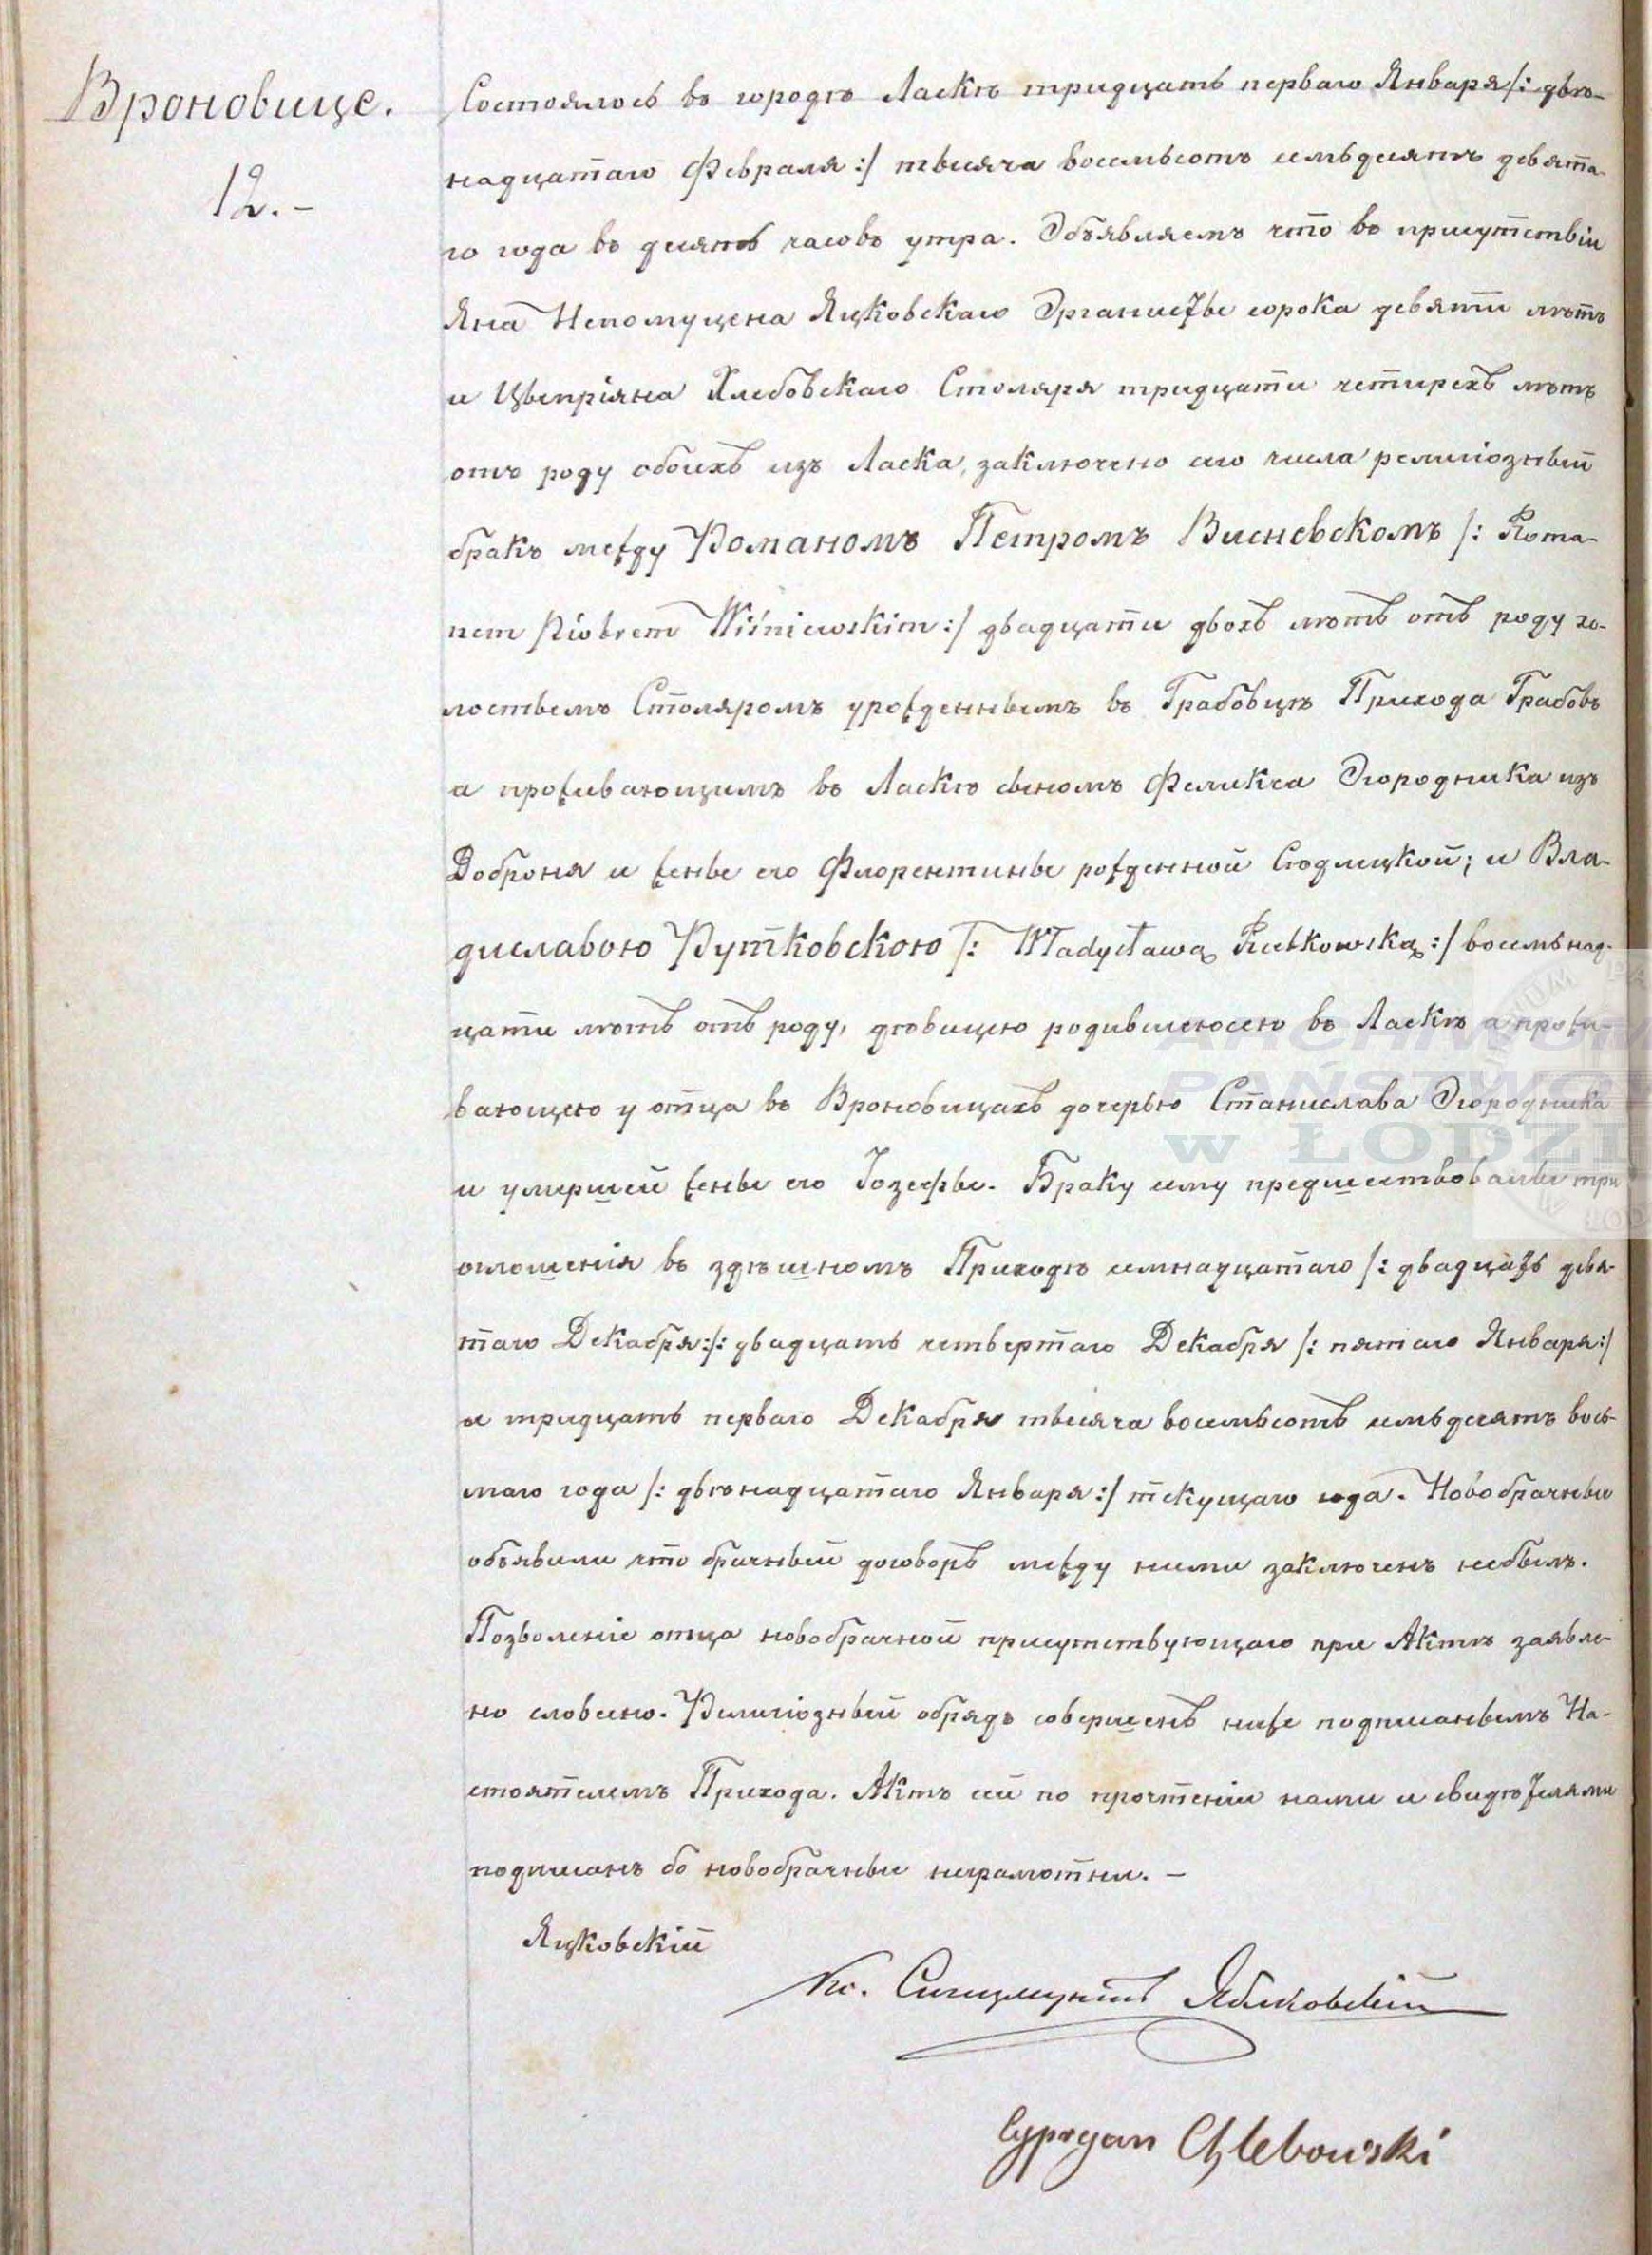 Вроновице.
12.-
Состоялось въ городѣ Ласкѣ тридцать перваго Января /: двѣ-
надцатаго Февраля :/ тысяча восемьсотъ семьдесятъ девята-
го года въ десять часовъ утра. Объявляемъ что въ присутствіи
Яна Непомуцена Яцковскаго Органисты сорока девяти лѣтъ
и Цыпріяна Хлебовскаго Столяра тридцати четирехъ лѣтъ
отъ роду обоихъ изъ Ласка, заключено сего числа религіозный
бракъ между Романомъ Петромъ Висневскомъ /: Roma-
nem Piotrem Wiśniewskim :/ двадцати двохъ лѣтъ отъ роду хо-
лостымъ Столяромъ урожденнымъ въ Грабовцѣ Прихода Грабовъ
а проживающимъ въ Ласкѣ сыномъ Феликса Огородника изъ
Доброня и жены его Флорентины рожденной Сѣдлецкой; и Вла-
диславою Рутковскою /: Władysławą Rutkowską :/ восемьнад-
цати лѣтъ отъ роду, дѣвицею родившеюсею въ Ласкѣ а прожи-
вающею у отца въ Вроновицахъ дочерью Станислава Огородника
и умершей жены его Іозефы. Браку сему предшествовалы три
оглошенія въ здѣшномъ Приходѣ семнадцатаго /: двадцать девя-
таго Декабря :/: двадцать четвертаго Декабря /: пятаго Января :/
и тридцать перваго Декабря тысяча восемьсотъ семьдесятъ вось-
маго года /: двѣнадцатаго Января :/ текущаго года. Новобрачные
объявили что брачный договоръ между ними заключенъ небылъ.
Позволеніе отца новобрачной присутствующаго при Актѣ заявле-
но словесно. Религіозный обрядъ совершенъ ниже подписанымъ На-
стоятелемъ Прихода. Актъ сей по прочтеніи нами и свидѣтелями
подписанъ бо новобрачные неграмотни. -
Яцковскій
Кс.
Cypryan Chlebowski
ARCHIWUM
PAŃSTWOWE
w ŁODZI